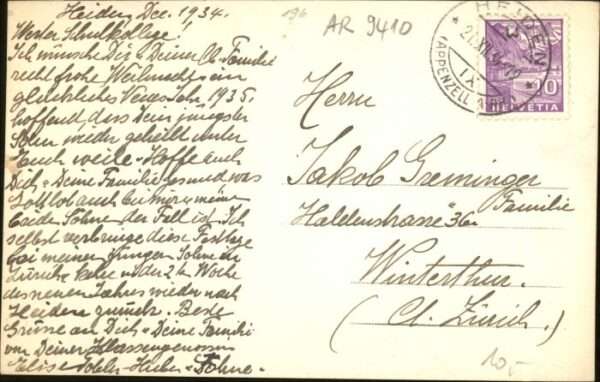 Heiden, Dec. 1934.
Werter Schulkollege!
Ich wünsche Dir & Deiner Cb. Familie
recht frohe Weihnacht & ein
glückliches Neues Jahr 1935.
hoffend dass Dein jüngster
Sohn wieder geheilt unter
Euch weile. Hoffe auch
Dich & Deine Familie gesund was
Gott lob auch bei mir & meine
beide Söhne der Fall ist. Ich
selbst verbringe diese Festtage
bei meinen jüngern Sohne in
Zürich & kehre in der 2ten Woche
des neuen Jahres wieder nach
Heiden zurück. Beste
Grüsse an Dich & Deine Familie
von Deiner Klassengenossin
Elise Huber & Söhne.
196
AR 9410
HEIDEN
21.XII.34
(APPENZELL A.RH.)
10
HELVETIA
Herrn
Jakob Greminger
Familie
Haldenstrasse 36
Winterthur.
(Ct. Zürich.)
10,-